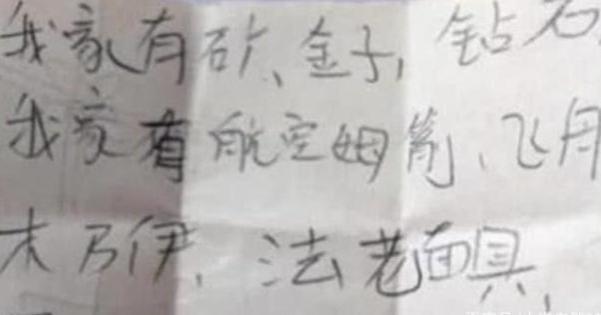 我家有矿、金子,钻石
我家有航空姆、飞
木乃伊,法老面具,